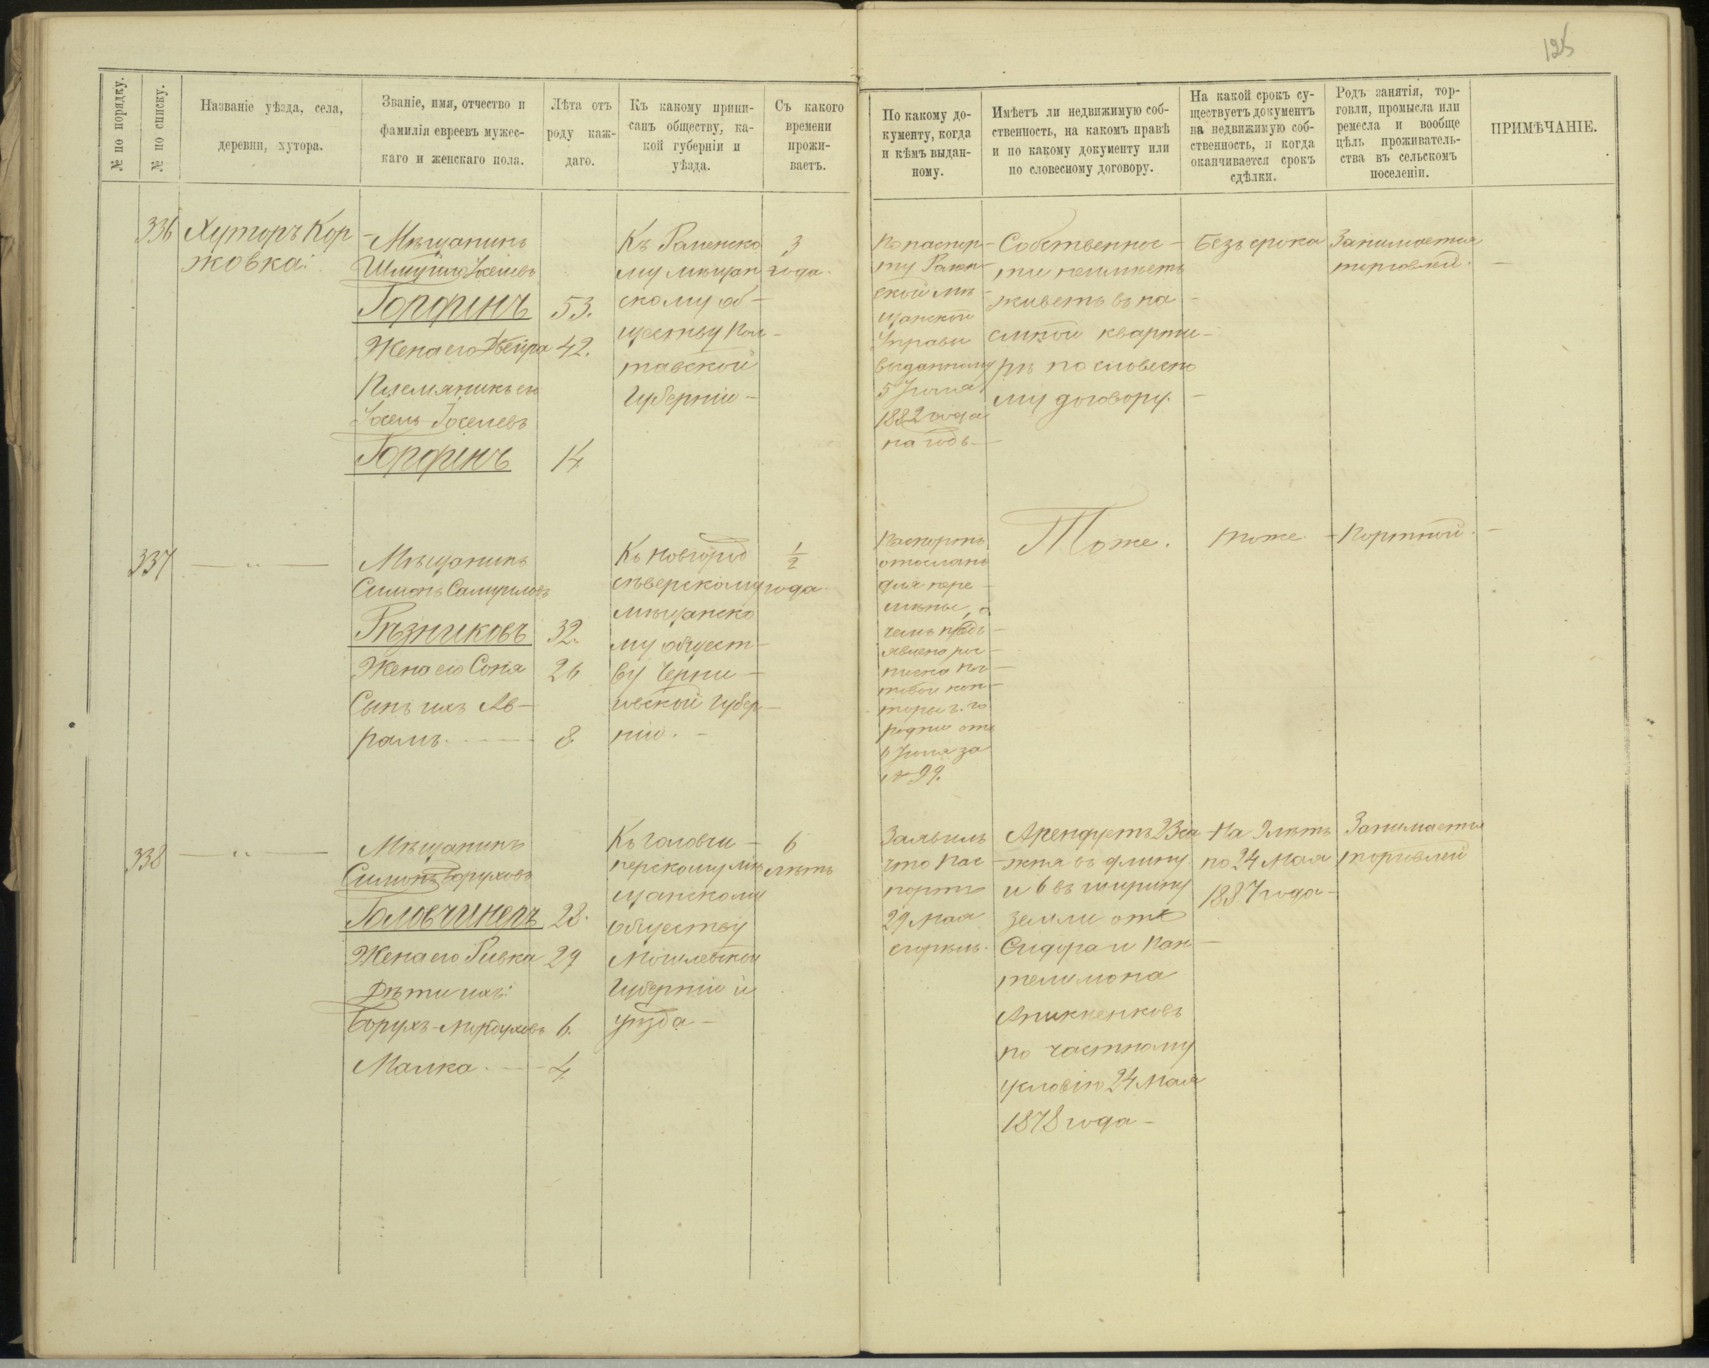 125
№ по порядку.
№ по списку.
Названіе уѣзда, села,
деревни, хутора.
Званіе, имя, отчество и
фамилія евреевъ мужес-
каго и женскаго пола.
Лѣта отъ
роду каж-
даго.
Къ какому припи-
санъ обществу, ка-
кой губерніи и
уѣзда.
Съ какого
времени
прожи-
ваетъ.
По какому до-
кументу, когда
и кѣмъ выдан-
ному.
Имѣетъ ли недвижимую соб-
ственность, на какомъ правѣ
и по какому документу или
по словесному договору.
На какой срокъ су-
ществуетъ документъ
на недвижимую соб-
ственность, и когда
оканчивается срокъ
сдѣлки.
Родъ занятія, тор-
говли, промысла или
ремесла и вообще
цѣль проживатель-
ства въ сельскомъ
поселеніи.
ПРИМѢЧАНІЕ.
336
Хуторъ Кор
жовка
Мѣщанинъ
Горфинъ
53.
Жена его Двейра
42.
Племянникъ его
Іосель Іоселевъ
Горфинъ
14
Къ Роменско
му мѣщан
скому об-
ществу Пол-
тавской
Губерніи -
3
года.
По паспор-
ту Ромен-
ской мѣ-
щанской
Управы
выданному
5 Іюня
1882 года
на годъ -
Собственнос-
ти неимѣетъ
живетъ въ на
емной кварти-
рѣ по словесно
му договору. -
Безъ срока
Занимается
торговлей. -
337
- " -
Мѣщанинъ
Симонъ Самуиловъ
Рѣзниковъ
32.
Жена его Соня
26
Сынъ ихъ Ав-
рамъ. - - -
8
Къ Новгород
сѣверскому
мѣщанско
му общест-
ву Черни-
говской Губер-
ніи. -
1/2
года
Паспортъ
отосланъ
для пере-
мѣны, о
чемъ предъ-
явлена рос-
писка поч-
товой кон-
торы г. Го
родни отъ
6 Іюня за
№ 99.
Тоже.
тоже
- Портной. -
338
- " -
Мѣщанинъ
Симонъ Боруховъ
Головчинеръ
28.
Жена его Ривка
29
Дѣти ихъ:
Борухъ-Мордуховъ
6.
Малка. - -
4
Къ Головчи-
нерскому мѣ
щанскому
обществу
Могилевской
Губерніи и
уѣзда -
6
лѣтъ
Заявилъ
что пас-
портъ
29 Мая
сгорѣлъ.
Арендуетъ 23 са
жня въ длину
и 6 въ ширину
земли отъ
Сидора и Пан-
телимона
по частному
условію 24 Мая
1878 года -
На 9 лѣтъ
по 24 Мая
1887 года -
Занимается
торговлей